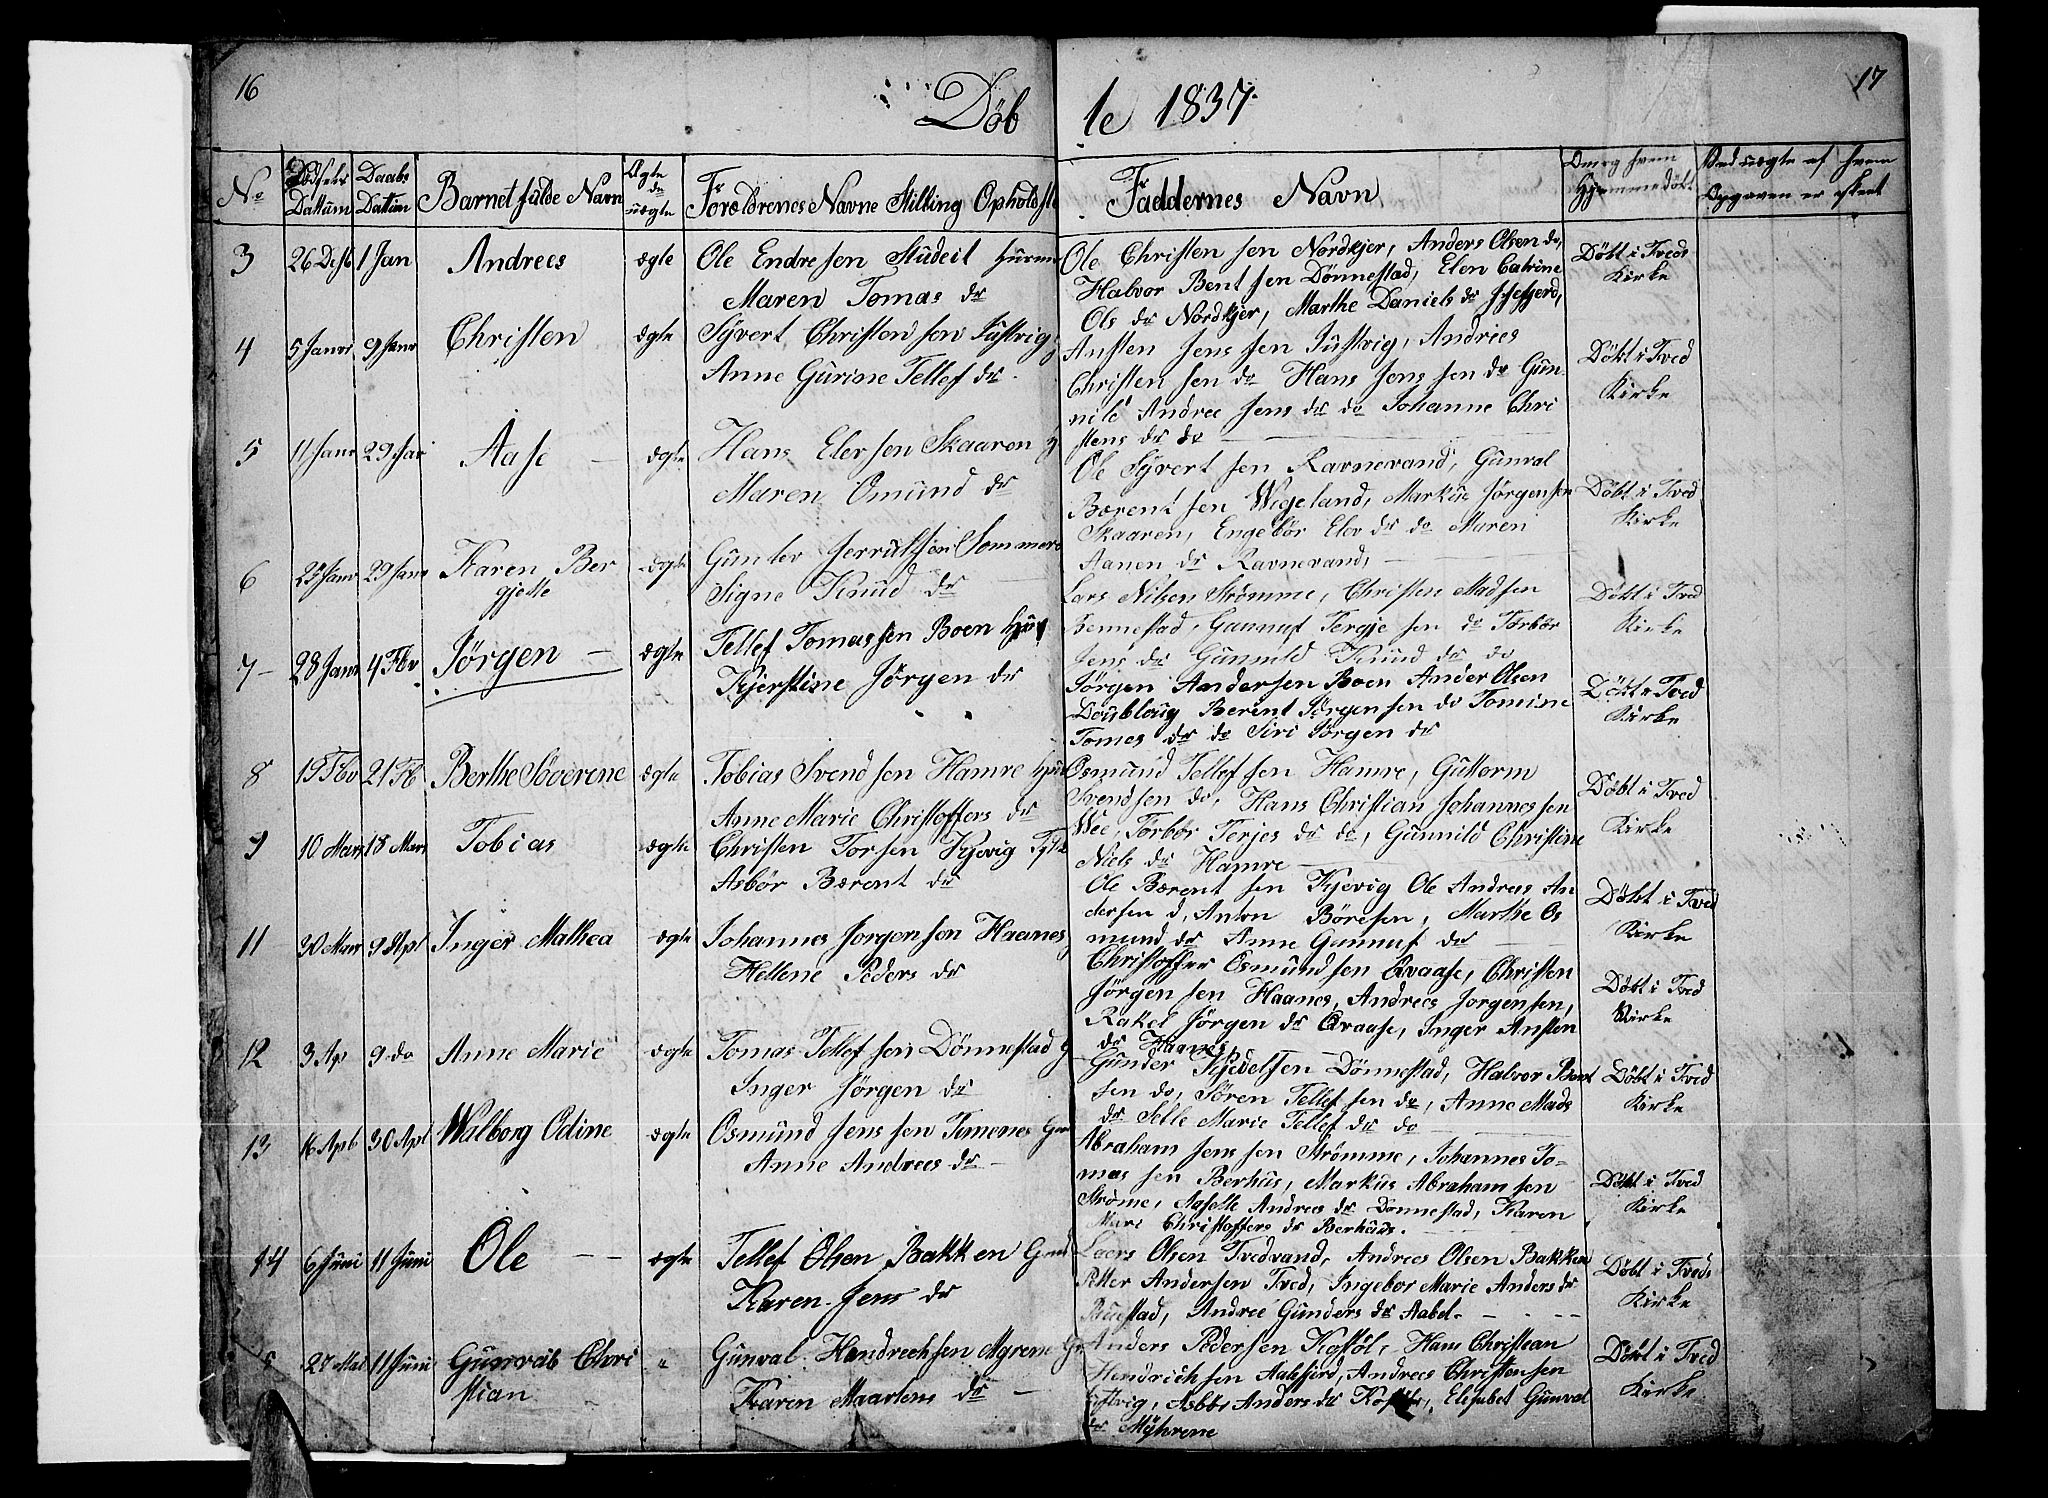 16
Døb
te 1837
17
No
Fødsels Dattum
Daabs Dattum
Barnet fulde Navn
Ægte do uægte
Forældrenes Navne Stilling Opholdste
Faddernes Navn
Om og hvem Hjemmedøbt
Ved uægte af hvem Opgaven er skeet
3 26 Desb 1 Jan Andrees ægte Ole Endresen
Maren Tomas dr
Ole Christensen Nordkjer, Anders Olsen do,
Halvor Bentsen Dønnestad, Elen Catrine
Ols dr Nordkjer, Marthe Daniels dr
Døbt i Tveds
Kirke
4 5 Janr 9 Janr Christen ægte Syvert Christensen Justvig
Anne Gurine Tellef dr
Ansten Jenssen Justvig, Andries
Christensen do Hans Jenssen do Gun
nild Andree Jens dr do Johanne Chri
stens dr do
Døbt i Tved
Kirke
5 11 Janr 29 Jan Aase ægte Hans Elersen Skaaren
Maren Omund dr
Ole Syvertsen Ravnevand, Gunval
Bærentsen Wigeland, Markus Jørgensen
Skaaren, Engebør Elev dr do Maren
Aanen dr Ravnevand,
Døbt i Tved
Kirke
6 23 Janr 29 Janr Karen Ber
gjette
ægte Gunlev
Signe Knud dr
Lars Nilsen Strømme, Christen Madsen
Bennestad, Gunnuf Tergjesen do Torbør
Jens dr Gunnild Knud dr do
Døbt i Tved
Kirke
7 28 Janr 4 Fbv Jørgen ægte Tellef Tomassen Boen
Kjerstine Jørgen dr
Jørgen Andersen Boen Ander Olsen
Doubloug Berent Jørgensen do Tomine
Tomes dr do Siri Jørgen dr
Døbt i Tved
Kirke
8 19 Fbv 21 Fb Berthe Søverene ægte Tobias Svendsen Hamre
Anne Marie Christoffers dr
Osmund Tellefsen Hamre, Guttorm
Svendsen do, Hans Christian Johannessen
Wee, Torbør Terjes dr do, Gunnild Christine
Niels dr Hamre
Døbt i Tved
Kirke
9 10 Mars 18 Mars Tobias ægte Christen Torsen Kjevig
Asbør Bærent dr
Ole Bærentsen Kjevig Ole Andreas An
dersen d, Anton Børesen, Marthe Os
mund dr Anne Gunnuf dr
Døbt i Tved
Kirke
11 30 Mar 9 Apl Inger Mathea ægte Johannes Jorgensen Haanes
Hellene Peders dr
Christoffer Osmundsen Qvaase, Christen
Jørgensen Haanes, Andrees Jorgensen,
Rakel Jørgen dr Qvaase, Inger Ansten
dr Haanes
Døbt i Tved
Kirke
12 3 Ap 9 do Anne Marie ægte Tomas Tellefsen Dønnestad
Inger Jørgen dr
Gunder Kjedelsen Dønnestad, Halvor Bent
sen do, Søren Tellefsen do, Anne Mads
dr Selle Marie Tellef dr do
Døbt i Tved
Kirke
13 16 Apb 30 Apl Walborg Odine ægte Osmund Jenssen Timenes
Anne Andrees dr
Abraham Jenssen Strømme, Johannes To-
massen Berhus, Markus Abrahamsen
Strøme, Aaselle Andrees dr Dønnestad, Karen
Mari Christoffers dr Berhuus.
Døbt i Tved
Kirke
14 6 Juni 11 Juni Ole ægte Tellef Olsen Bakken Grd
Karen Jens dr
Laers Olsen Tvedvand, Andrees Olsen Bakken
Petter Andersen Tved, Ingebor Marie Anders dr
Buestad, Andree Gunders dr Aabel
Døbt i Tveds
Kirke
27 Mai 11 Juni Gunvald Chri
stian
" Gunval Hendrechsen Myrene
Karen Maartens dr
Anders Pedersen Kostøl, Hans Christian
Hendrichsen Aalefiærd, Andrees Christensen
Justvig, Asbør Anders dr Kostøl, Elesabet Gunval
dr Myhrene
Døbt i Tved
Kirke